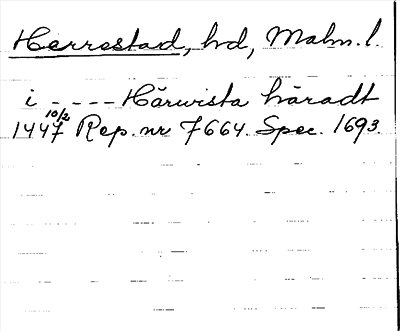 Herrestad, hd, Malm. l.
i - - - - Härwista häradt
1447 10/2 Rep. nr 7664. Spec. 1693.